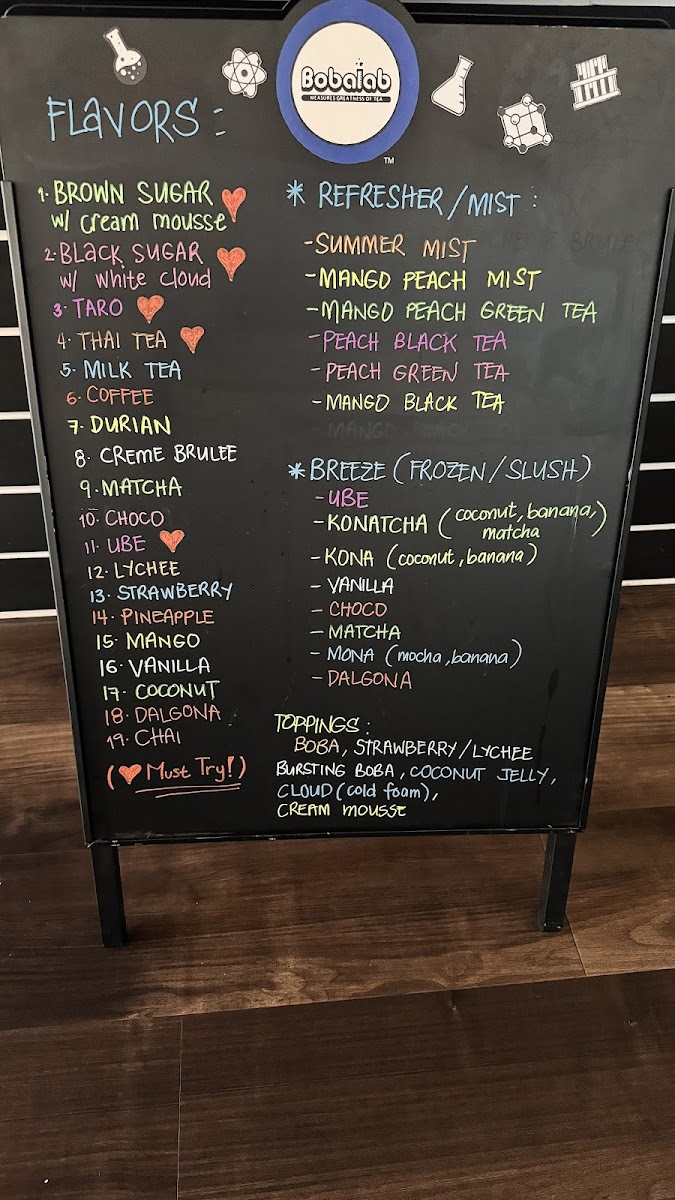 Bobalab
MEASURES GREATNESS OF TEA
TM
FLAVORS :
1. BROWN SUGAR
w/ cream mousse
2. BLACK SUGAR
w/ white cloud
3. TARO
4. THAI TEA
5. MILK TEA
6. COFFEE
7. DURIAN
8. CREME BRULEE
9. MATCHA
10. CHOCO
11. UBE
12. LYCHEE
13. STRAWBERRY
14. PINEAPPLE
15. MANGO
16. VANILLA
17. COCONUT
18. DALGONA
19. CHAI
(♥ Must Try!)
* REFRESHER/MIST :
- SUMMER MIST
- MANGO PEACH MIST
- MANGO PEACH GREEN TEA
- PEACH BLACK TEA
- PEACH GREEN TEA
- MANGO BLACK TEA
* BREEZE (FROZEN/SLUSH)
- UBE
- KONATCHA (coconut, banana,
matcha)
- KONA (coconut, banana)
- VANILLA
- CHOCO
- MATCHA
- MONA (mocha, banana)
- DALGONA
TOPPINGS :
BOBA, STRAWBERRY/LYCHEE
BURSTING BOBA, COCONUT JELLY,
CLOUD (cold foam),
CREAM mousse